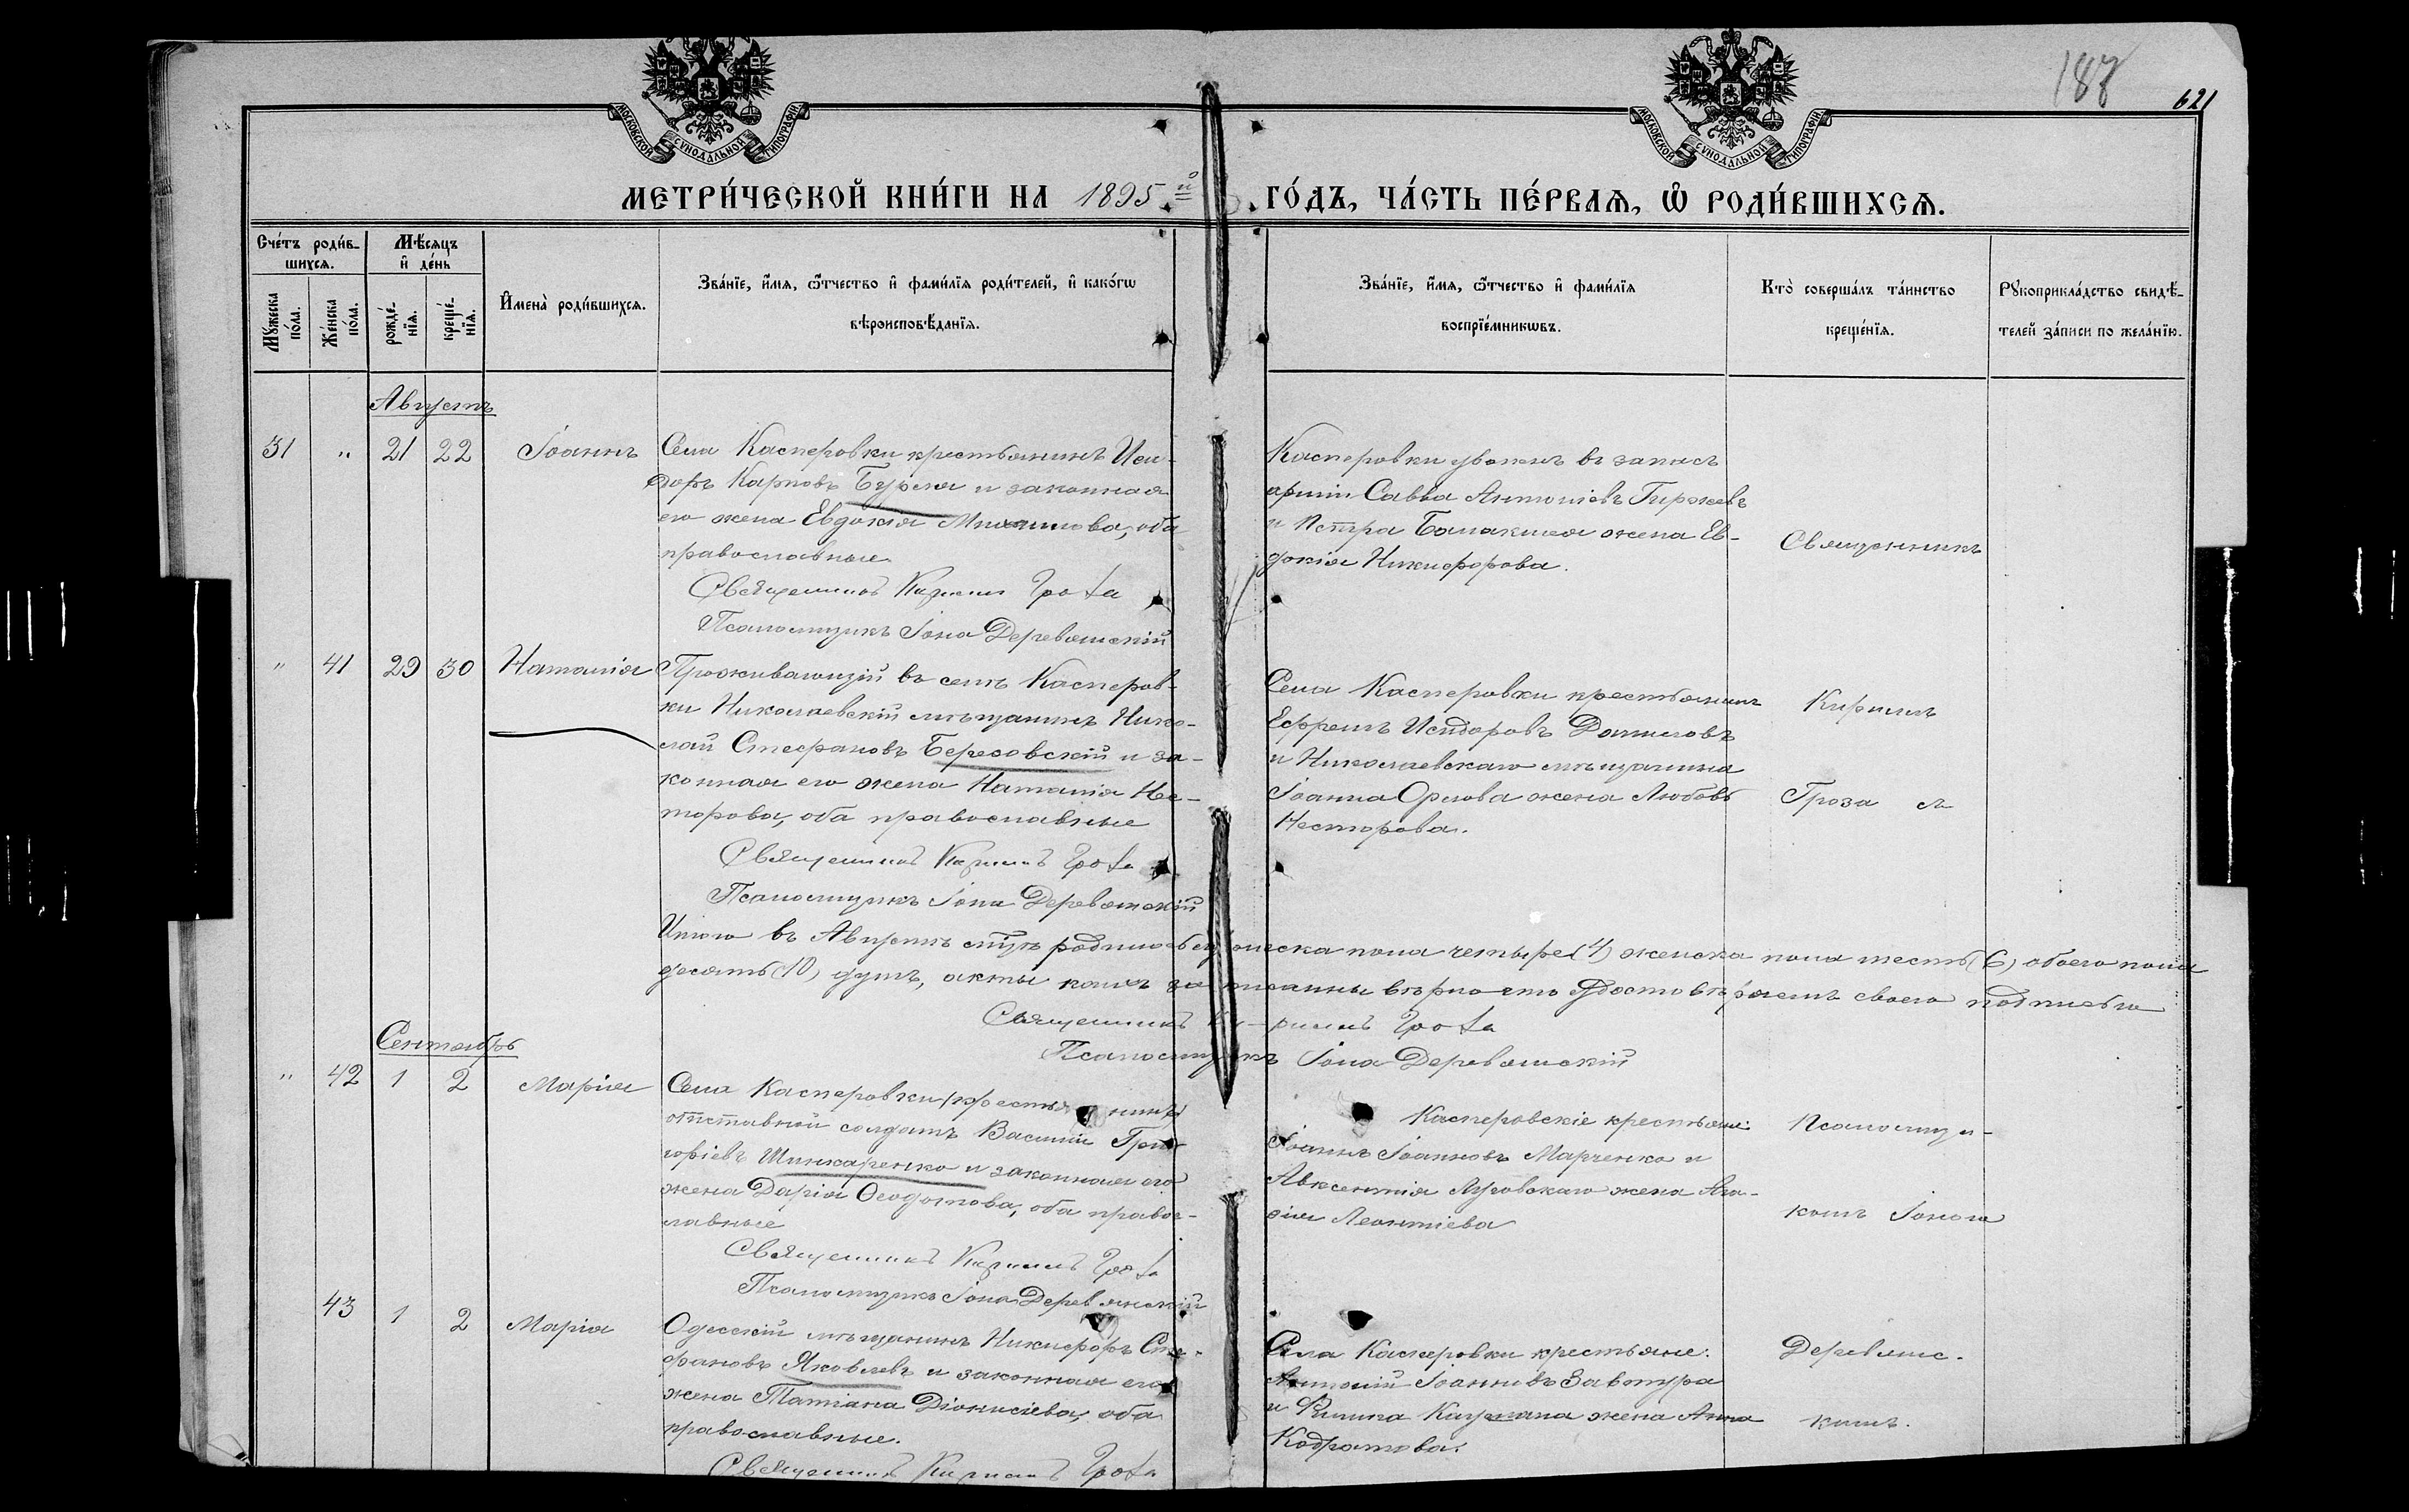 187
621
МОСКОВСКОЙ СѴНОДАЛЬНОЙ ТИПОГРАФІИ
МОСКОВСКОЙ СѴНОДАЛЬНОЙ ТИПОГРАФІИ
МЕТРИ́ЧЕСКОЙ КНИ́ГИ НА 1895й ГО́ДЪ, ЧА́СТЬ ПЕ́РВАЯ, Ѡ РОДИ́ВШИХСЯ.
Сче́тъ роди́в-
шихся.
Мѣ́сяцъ
и҆ де́нь
Мꙋжеска по́ла.
Же́нска по́ла.
рожде́-нїя.
креще́-нїя.
И҆мена̀ роди́вшихся.
Зва́нїе, и҆́мя, ѻ҆́тчество и҆ фами́лїя роди́телей, и҆ како́гѡ
вѣроисповѣ́данїя.
Зва́нїе, и҆́мя, ѻ҆́тчество и҆ фами́лїя
воспрїе́мникѡвъ.
Кто̀ соверша́лъ та́инство
креще́нїя.
Рꙋкоприкла́дство свидѣ́-
телей за́писи по жела́нїю.
Августъ
31 " 21 22 Іоаннъ
Села Касперовки крестьянинъ Иси-
доръ Карповъ Бурся и законная
его жена Евдокія, оба
православные.
Священникъ Кириллъ Гроза
Псаломщикъ Іона Деревянскій
Касперовки уволен. въ запасъ
арміи Савва Антоніевъ Гиржевъ
и Петра Балакшея жена Ев-
докія Никифорова.
Священникъ
" 41 29 30 Наталія
Проживающій въ селѣ Касперов-
ки Николаевскій мѣщанинъ Нико-
лай Стефановъ Березовскій и за-
конная его жена Наталія Нес-
торова, оба православные
Священникъ Кириллъ Гроза
Псаломщикъ Іона Деревянскій
Села Касперовки крестьянинъ
Ефремъ Исидоровъ Даниловъ
и Николаевскаго мѣщанина
Іоанна Орлова жена Любовь
Несторова.
Кириллъ
Гроза съ
Итого въ Августѣ м-цѣ родилось мужеска пола четыре (4) женска пола шесть (6) обоего пола
десять (10) душъ, акты коихъ записанны вѣрно что удостовѣряемъ своею подписью
Священникъ Кириллъ Гроза
Псаломщикъ Іона Деревянскій
Сентябрь
" 42 1 2 Марія
Села Касперовки (крестьянинъ)
отставной солдатъ Василій Гри-
горіевъ Шинкаренко и законная его
жена Дарія Ѳеодотова, оба правос-
лавные
Священникъ Кириллъ Гроза
Псаломщикъ Іона Деревянскій
Касперовскіе крестьяне:
Іоаннъ Іоанновъ Марченко и
Авксентія Луговскаго жена Ага-
ѳія Леонтіева
Псаломщи-
комъ Іоною
43 1 2 Марія
Одесскій мѣщанинъ Никифоръ Сте-
фановъ Яковлевъ и законная его
жена Татіана Діонисіева, оба
православные.
Священникъ Кириллъ Гроза
Села Касперовки крестьяне:
Антоній Іоанновъ Завтура
и Филипа жена Анна
Кодратова.
Деревянс-
кимъ.